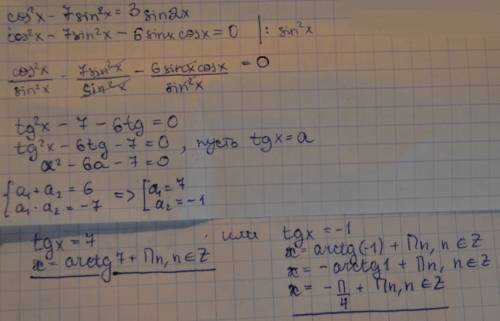 cos²x - 7sin²x = 3sin2x
cos²x - 7sin²x - 6sinxcosx = 0 | : sin²x
cos²x/sin²x - 7sin²x/sin²x - 6sinxcosx/sin²x = 0
tg²x - 7 - 6tg = 0
tg²x - 6tg - 7 = 0, пусть tgx = a
a² - 6a - 7 = 0
{a₁ + a₂ = 6
a₁ · a₂ = -7 => [a₁ = 7
a₂ = -1
tgx = 7 или tgx = -1
x = arctg7 + Пn, n∈Z
x = arctg(-1) + Пn, n∈Z
x = -arctg1 + Пn, n∈Z
x = -П/4 + Пn, n∈Z